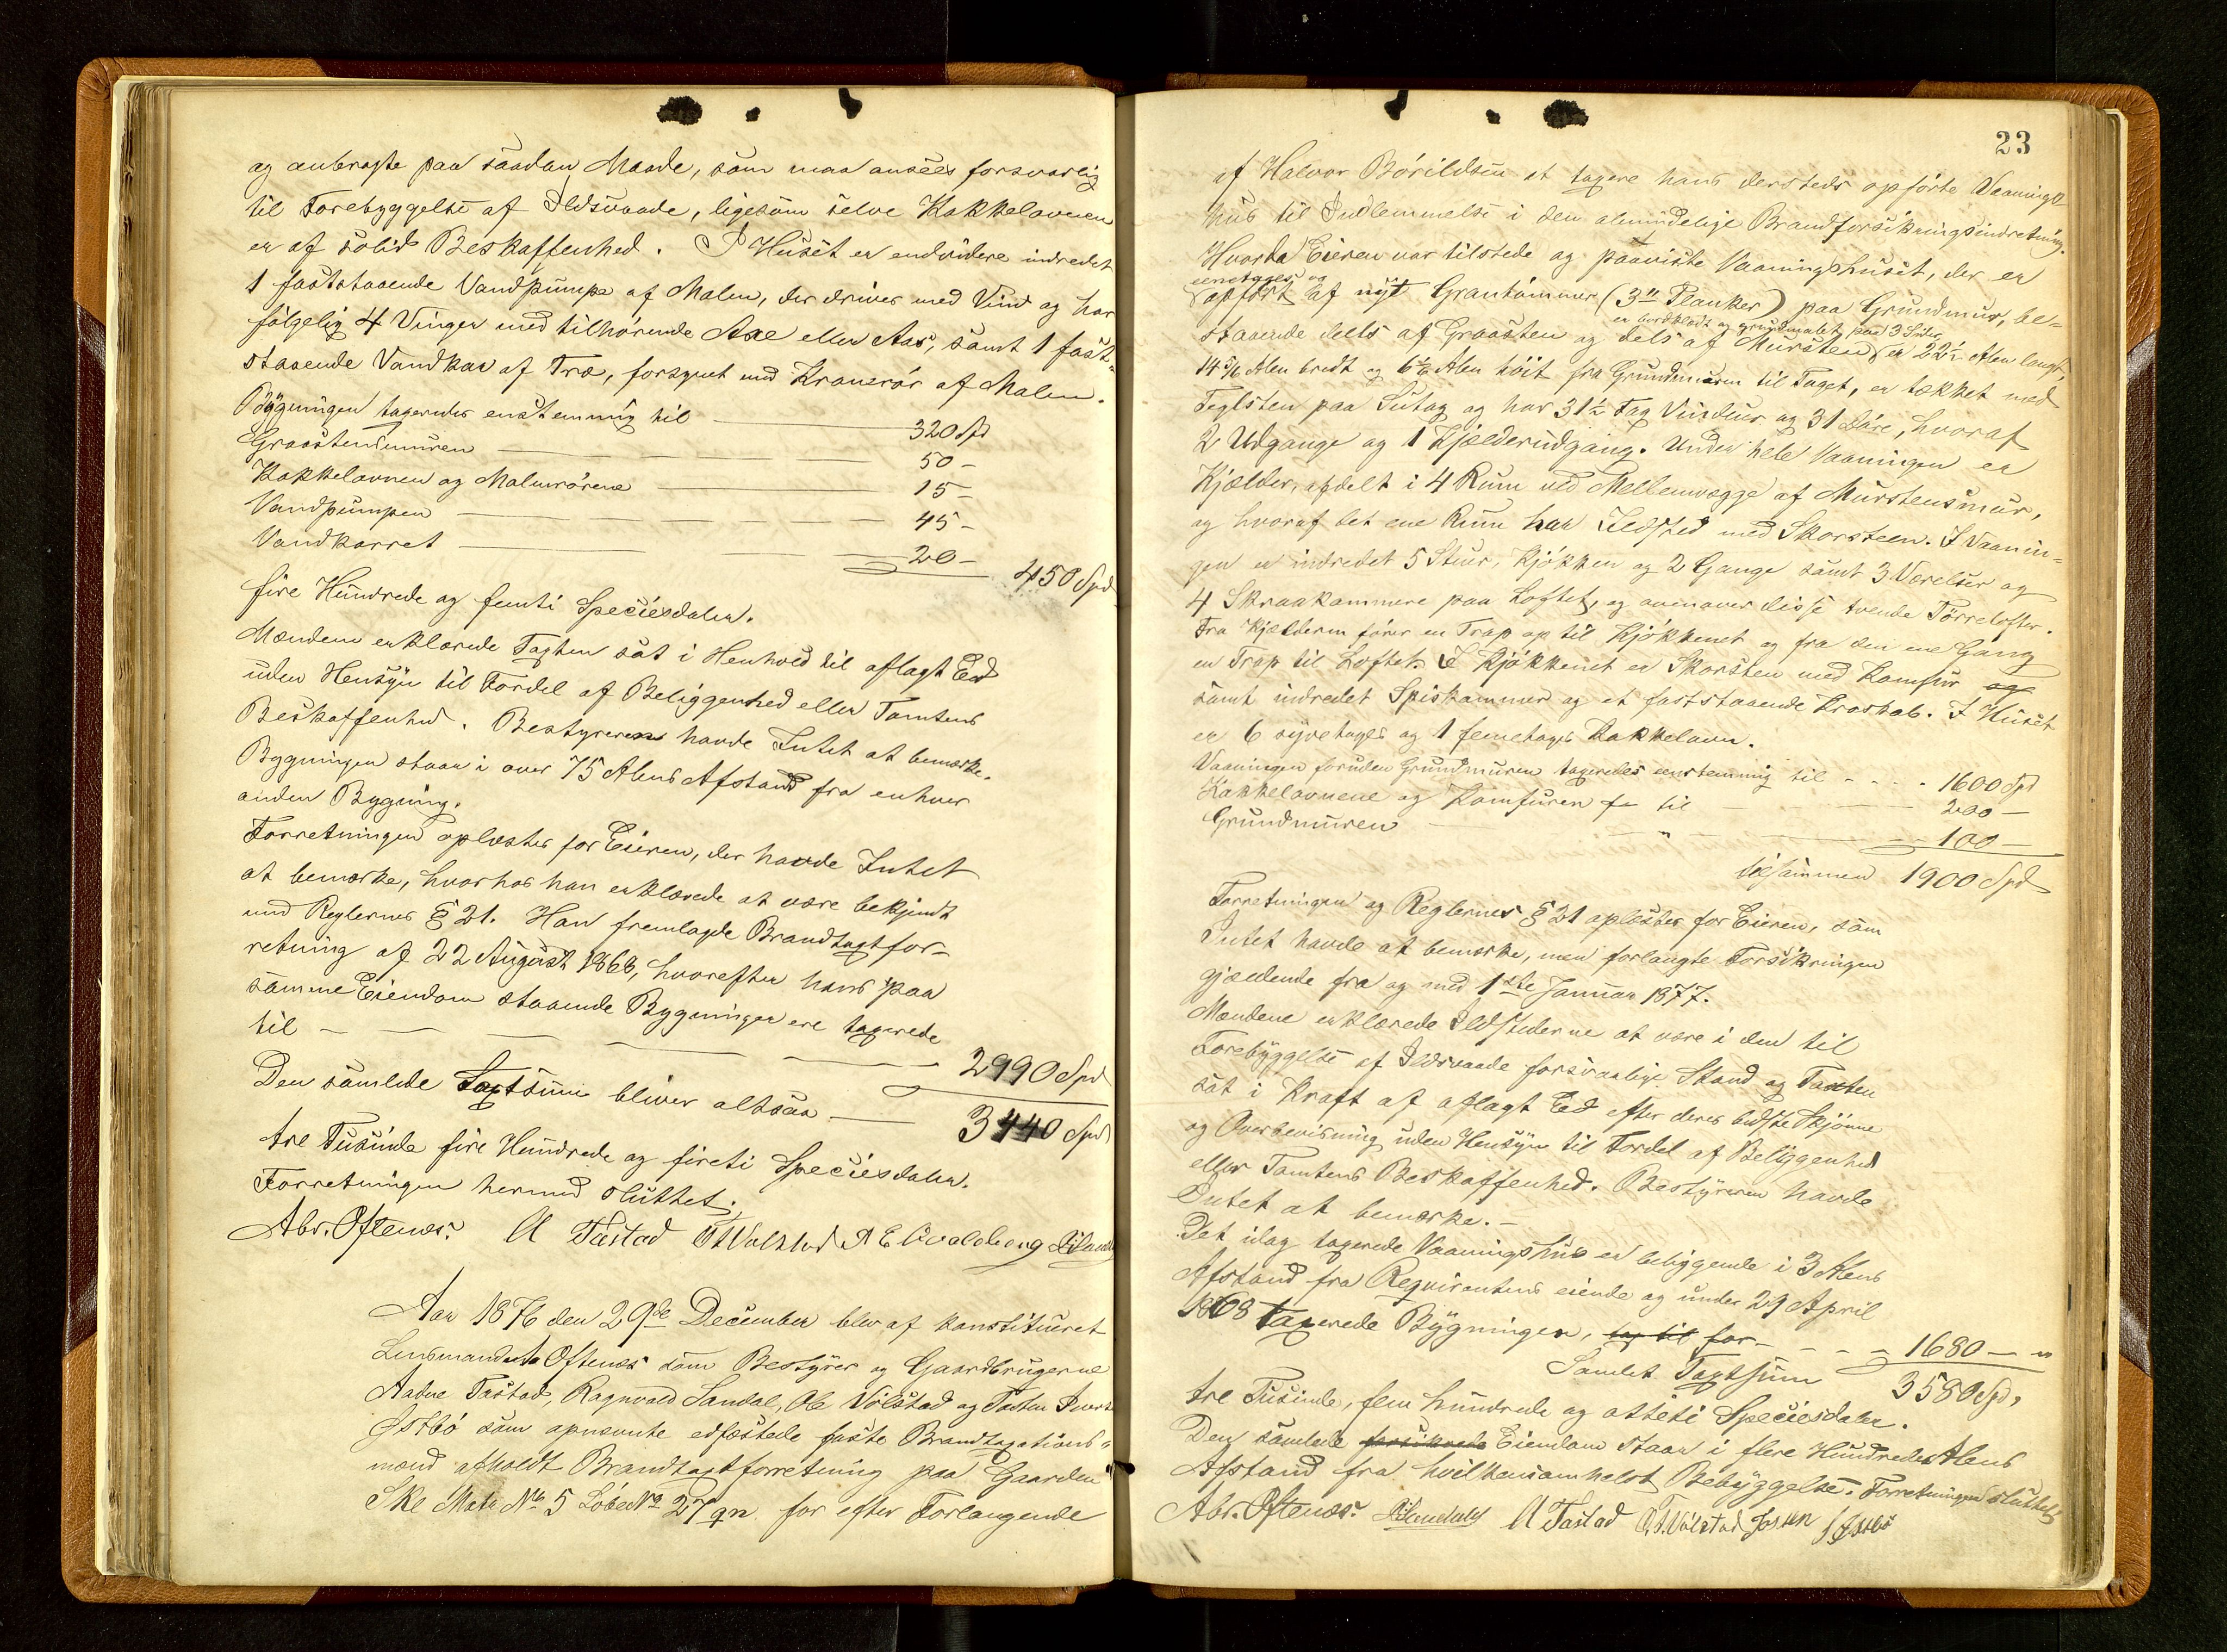 og anbragte paa saadan Maade, som maa ansees forsvarlig
til Forebyggelse af Ildsvaade, ligesom selve Kakkelovnen
er af solid Beskaffenhed. I Huset er endvidere indredet
1 faststaaende Vandpumpe af Malm, der drives med Vind og har
følgelig 4 Vinger med tilhørende Axe eller Aas, samt 1 fast-
staaende Vandkar af Træ, forsynet med Kranrør af Malm.
Bygningen taxeredes enstemmig til 320 Spd
Graastensmuren 50 –
Kakkelovnen og Malmrørene 15 –
Vandpumpen 45 –
Vandkarret 20 – 450 Spd
fire Hundrede og femti Speciesdaler.
Mændene erklærede Taxten sat i Henhold til aflagt Ed
uden Hensyn til Fordel af Beliggenhed eller Tomtens
Beskaffenhed. Bestyreren havde Intet at bemærke.
Bygningen staar i over 75 Alens Afstand fra enhver
anden Bygning.
Forretningen oplæstes for Eieren, der havde Intet
at bemærke, hvorhos han erklærede at være bekjendt
med Reglernes § 21. Han fremlagde Brandtaxtfor-
retning af 22 August 1868, hvorefter hans paa
samme Eiendom staaende Bygninger ere taxerede
til 2990 Spd
Den samlede Taxtsum bliver altsaa 3440 Spd
tre Tusinde fire Hundrede og fireti Speciesdaler.
Forretningen hermed sluttet.
Abr. Oftenæs. A Tastad O T Vølstad R E
Aar 1876 den 29de December blev af konstitueret
Lensmand A Oftenæs som Bestyrer og Gaardbrugerne
Aadne Tastad, Ragnvald Sandal, Ole Vølstad og Josten Iverts
Østbø som opnævnte edfæstede faste Brandtaxations-
mænd afholdt Brandtaxtforretning paa Gaarden
Matr No 5 Løbe No 27 for efter Forlangende
23
af Halvor Børildsen at taxere hans dersteds opførte Vaanings-
hus til Indlemmelse i den almindelige Brandforsikringsindretning.
Hvorda Eieren var tilstede og paaviste Vaaningshuset, der er
eenetages og
opført af nyt Grantømmer (3" Planker) paa Grundmur, be-
er bordklædt og grundmalet paa 3 Sider
staaende dels af Graasten og dels af Mursten, er 22½ Alen langt,
14 5/6 Alen bredt og 6½ Alen høit fra Grundmuren til Taget, er tækket med
Teglsten paa Sutag og har 31½ Fag Vinduer og 31 Døre, hvoraf
2 Udgange og 1 Kjælderudgang. Under hele Vaaningen er
Kjælder, afdelt i 4 Rum ved Mellemvægge af Murstensmur,
og hvoraf det ene Rum har Ildsted med Skorsteen. I Vaanin-
gen er indredet 5 Stuer, Kjøkken og 2 Gange samt 3 Værelser og
4 Skraakammere paa Loftet, og ovenover disse tvende Tørrelofter.
Fra Kjælderen fører en Trap op til Kjøkkenet og fra den ene Gang
en Trap til Loftet. I Kjøkkenet er Skorsten med Komfur og
samt indredet Spiskammer og et faststaaende Kroskab. I Huset
er 6 syvetages og 1 femetages Kakkelovn.
Vaaningen foruden Grundmuren taxeredes eenstemmig til 1600 Spd
Kakkelovnene og Komfuren til 200 –
Grundmuren " 100 –
tilsammen 1900 Spd
Forretningen og Reglernes § 21 oplæstes for Eieren, som
Intet havde at bemærke, men forlangte Forsikringen
gjældende fra og med 1ste Januar 1877.
Mændene erklærede Ildstederne at være i den til
Forebyggelse af Ildsvaade forsvarlige Stand og Taxten
sat i Kraft af aflagt Ed efter deres bedste Skjønne
og Overbevisning uden Hensyn til Fordel af Beliggenhed
eller Tomtens Beskaffenhed. Bestyreren havde
Intet at bemærke. –
Det idag taxerede Vaaningshus er beliggende i 3 Alens
Afstand fra Requirentens eiende og under 29 April
1868 taxerede Bygninger, tax til for 1680 – "
Samlet Taxtsum 3580 Spd,
tre Tusinde, fem hundrede og otteti Speciesdaler.
Den samlede forsikrede Eiendom staar i flere Hundrede Alens
Afstand fra hvilkensomhelst Bebyggelse. Forretningen sluttet
Abr. Oftenæs. A Tastad O. T. Vølstad Josten I Østbø